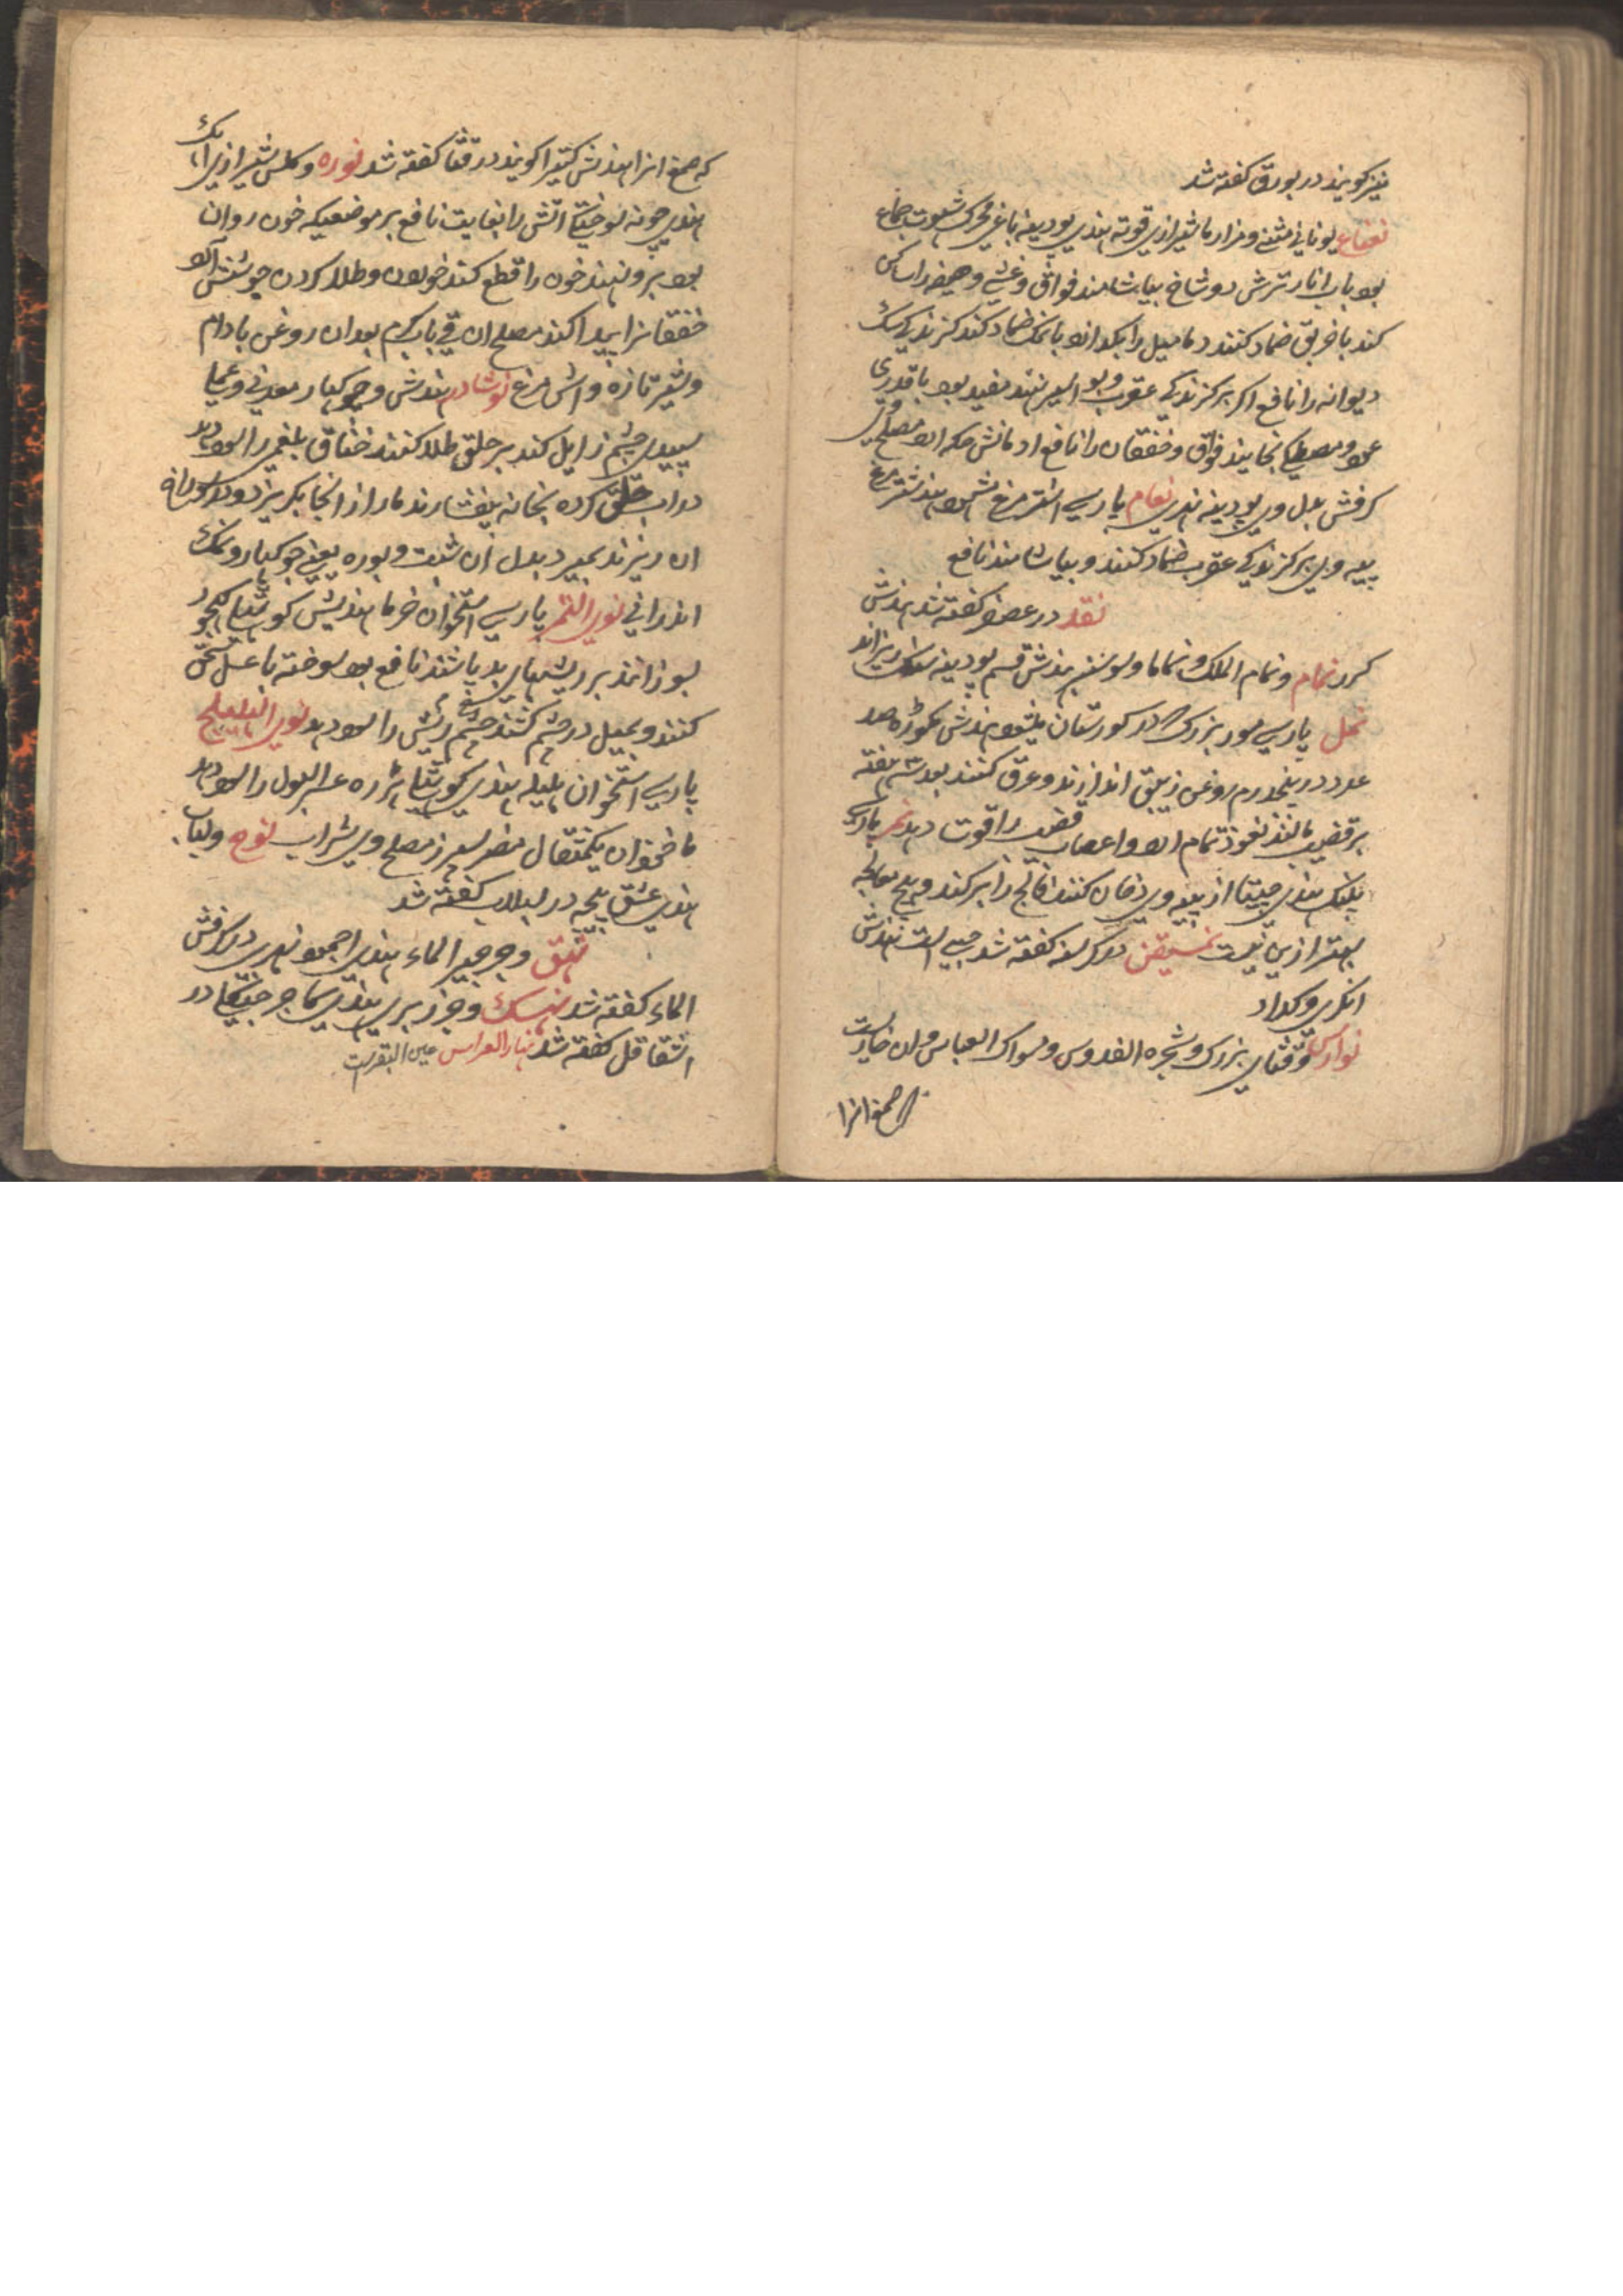 نیز کویند در بورق کفته شد
نعناع یونانی مثنے و مزارما شیرازی قوته هندی پودینه باغی محرک شهوت جماع
بود باب انار ترش دو شاخ بیاشامند فواق و غشے و هیضه را ساکن
کند با خریق ضماد کنند دمامیل را بکدازد با نمک ضماد کند کزندکی سک
دیوانه را نافع اکر بر کزندکی عقرب و بواسیر نهند مفید بود با قدری
عود و مصطکی بخایند فواق و خفقان را نافع ادمانش حکه ارد مصلح وی
کرفش بدل وی پودینه نهری نعام پارسے اشتر مرغ هند شتر مرغ
پیه وی بر کزندکی عقرب ضماد کنند و بیاشامند نافع
نقد در عصفر کفته شد هندش
کرر نمام و نمام الملک و نماما و سوسنبر هندش قسم پودینه سنک ریزاند
نمل پارسے مور بزرک که در کورستان میشود هندش مکوڑه صد
عدد در پنجدرم روغن زیبق اندازند و غرق کنند بعد سه هفته
بر قضیب مالند نعوذ تمام ارد و اعصاب قضیب را قوت دهد نمر پارسے
پلنک هندی چیتا از پیه وی دخان کنند فالج را بر کند و هیچ معالجه
بهتر ازین نیست نمسیقن در کرسنه کفته شد حبے است هندش
انکری و کداد
نوارس و قثای بزرک و شجره الفدوس و سواک العباس و ان خاریست
که صمغ انرا
که صمغ انرا هندش کتیرا کویند در قثا کفته شد نوره و کلس شیرازی اهک
هندی چونه سوختکی اتش را بغایت نافع بر موضعیکه خون روان
بود برو نهند خون را قطع کند خوردن و طلا کردن جوشش ارد
خفقانرا پیدا کند مصلح ان قے باب کرم بعد ان روغن بادام
و شیر تازه و اش مرغ نوشادر هندش و چوکهار معدنی و عملی
سپیدی چشم زایل کند بر حلق طلا کنند خناق بلغمی را سود دهد
در اب حلق کرده بخانه بیفشارند مار از انجا بکریزد و در سوراخ
ان ریزند بمیرد بدل ان شبت و بوره یعنے چوکهار و نمک
اندرانی نوی التمر پارسے استخوان خرما هندیش کوشتهای کهجور
بسوزانند بر ریشهای بد پاشند نافع بود سوخته با عسل سحق
کنند و بمیل در چشم کشند چشم ریش را سود دهد نوی الهلیلج
پارسے استخوان هلیله هندی کوشتهای هرره عسر البول را سود دهد
ماخوذ ان یکمثقال مضر سپرز مصلح وی شراب نوح و لبلاب
هندی عشق پیچه در لبلاب کفته شد
نهق و جرجیر الماء هندی اجمود نهری در کرفش
الماء کفته شد نهسک و جزر بری هندی کاجر جنکلی در
اشقاقل کفته شد نهار العراس عین البقرست